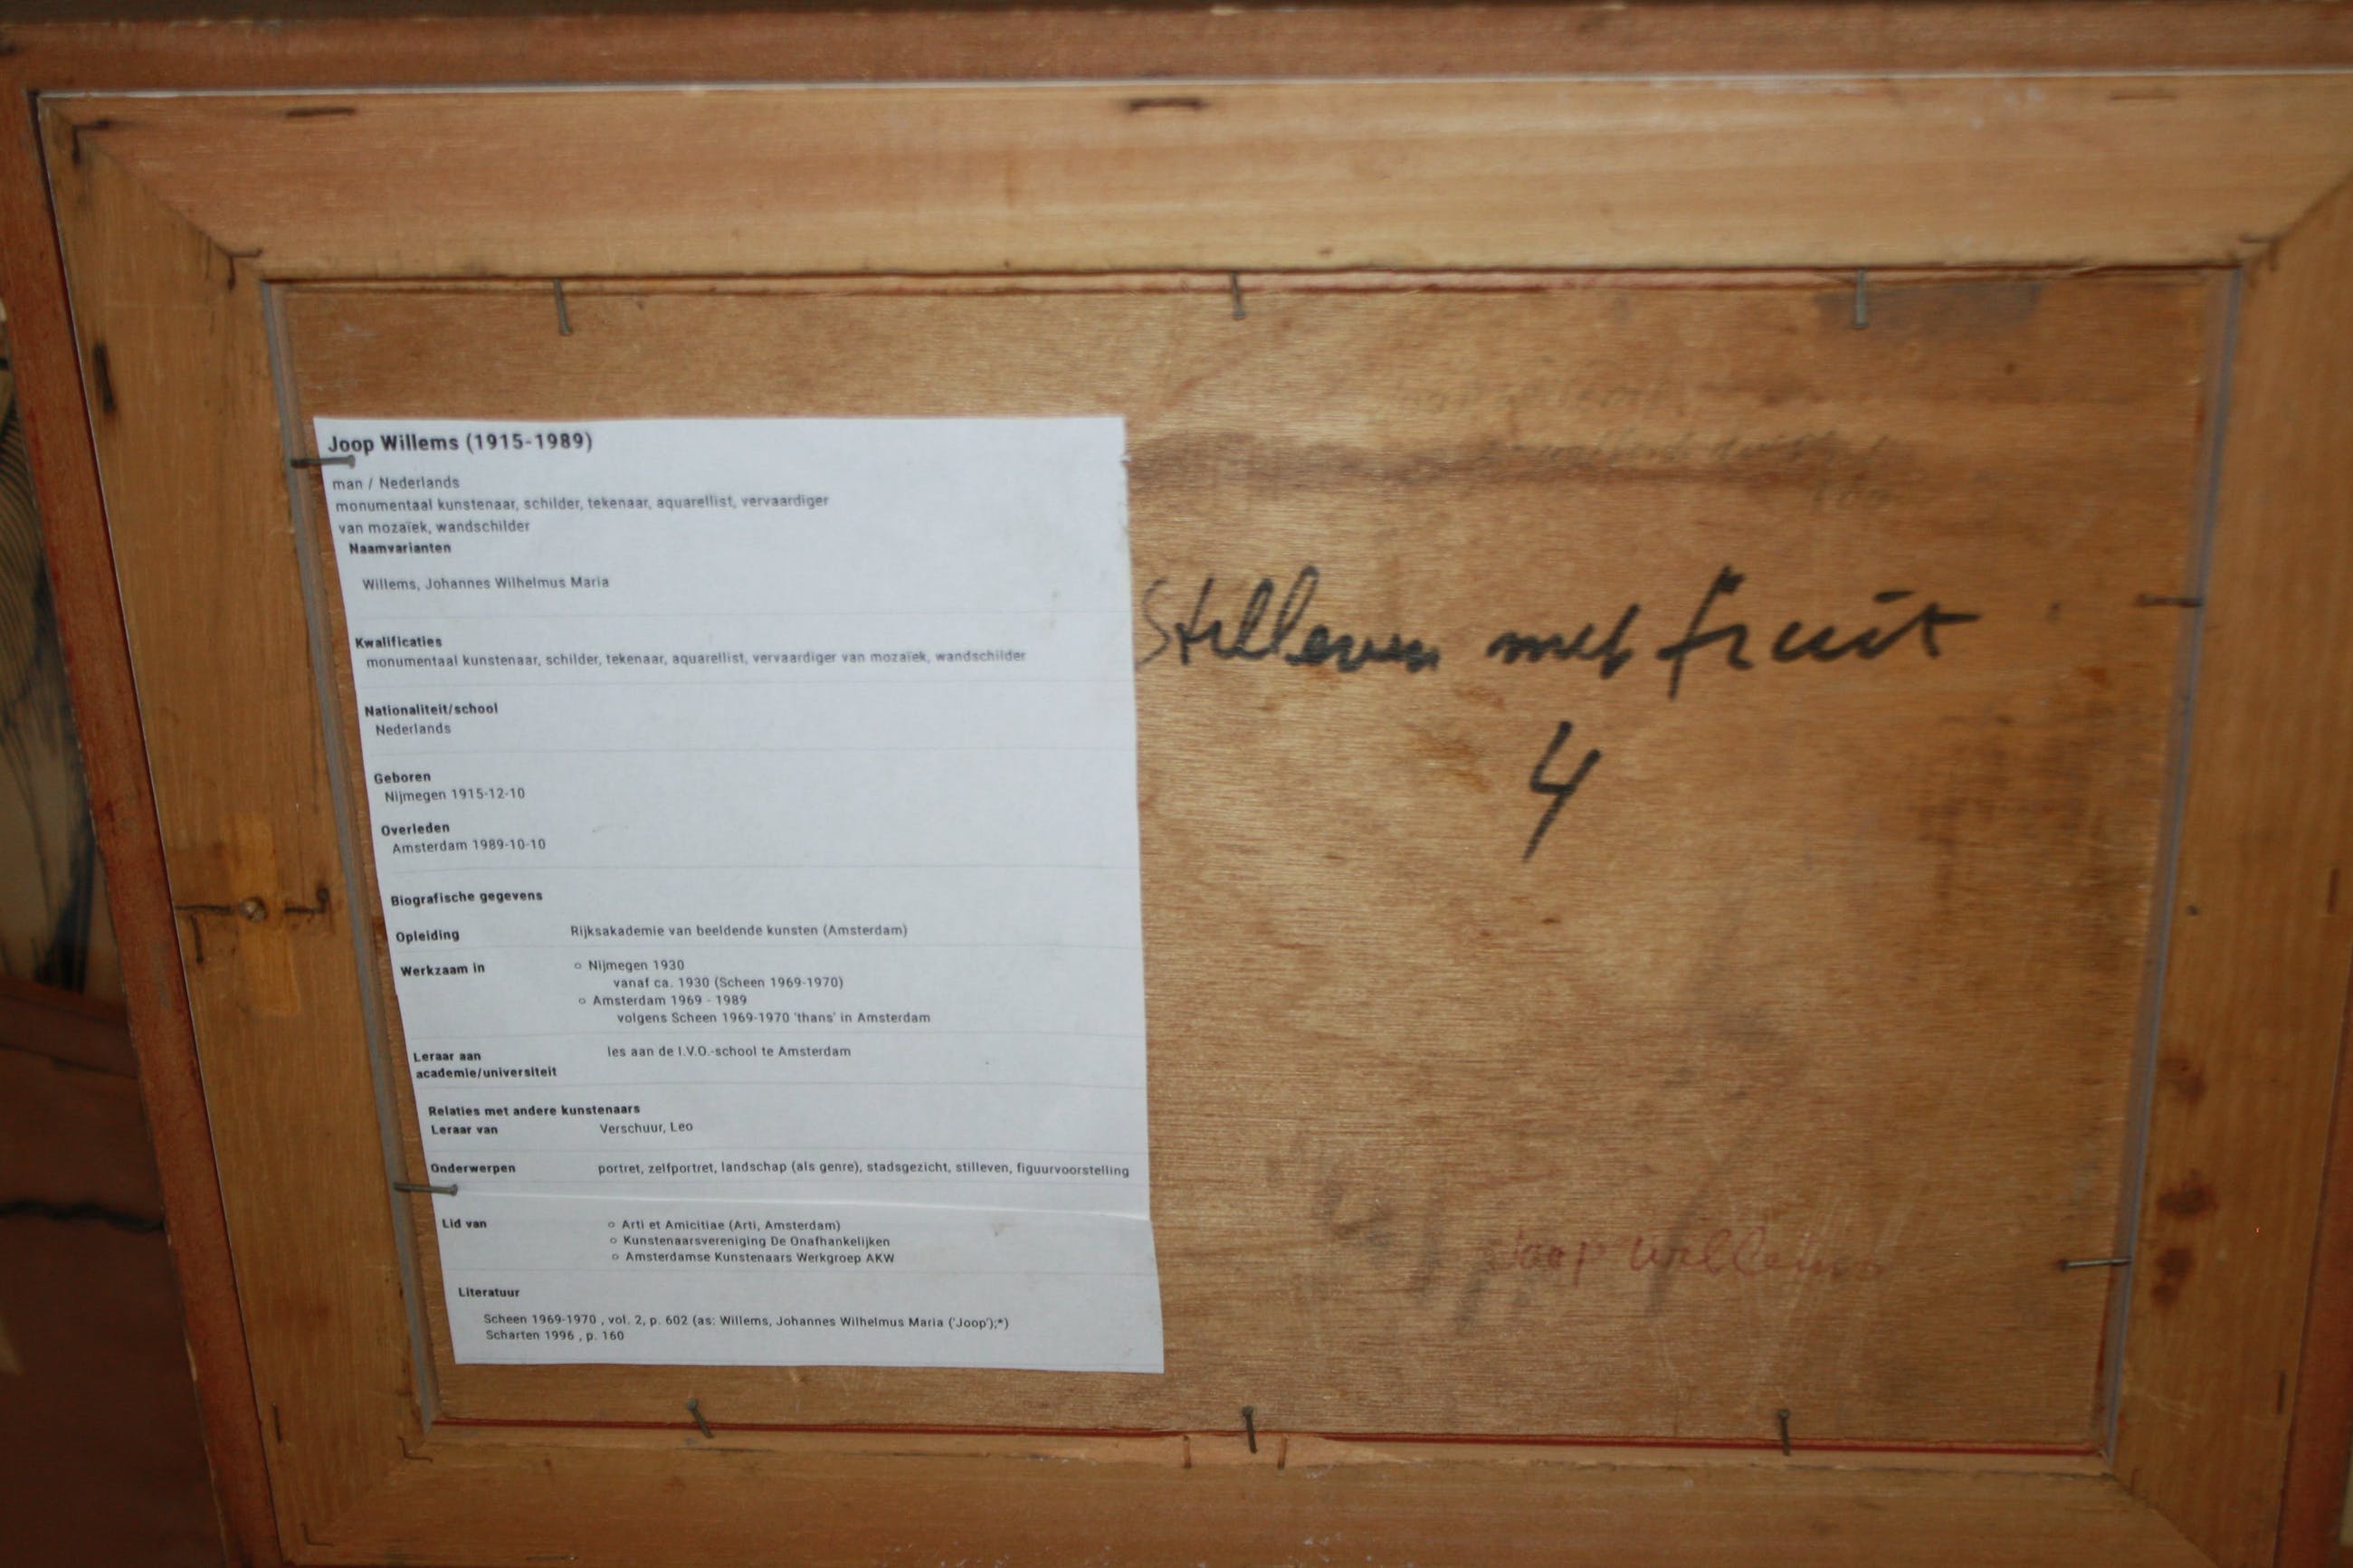 Joop Willems (1915-1989)
man / Nederlands
monumentaal kunstenaar, schilder, tekenaar, aquarellist, vervaardiger
van mozaïek, wandschilder
Naamvarianten
Willems, Johannes Wilhelmus Maria
Kwalificaties
monumentaal kunstenaar, schilder, tekenaar, aquarellist, vervaardiger van mozaïek, wandschilder
Nationaliteit/school
Nederlands
Geboren
Nijmegen 1915-12-10
Overleden
Amsterdam 1989-10-10
Biografische gegevens
Opleiding Rijksakademie van beeldende kunsten (Amsterdam)
Werkzaam in ○ Nijmegen 1930
vanaf ca. 1930 (Scheen 1969-1970)
○ Amsterdam 1969 - 1989
volgens Scheen 1969-1970 'thans' in Amsterdam
Leraar aan les aan de I.V.O.-school te Amsterdam
academie/universiteit
Relaties met andere kunstenaars
Leraar van Verschuur, Leo
Onderwerpen portret, zelfportret, landschap (als genre), stadsgezicht, stilleven, figuurvoorstelling
Lid van ○ Arti et Amicitiae (Arti, Amsterdam)
○ Kunstenaarsvereniging De Onafhankelijken
○ Amsterdamse Kunstenaars Werkgroep AKW
Literatuur
Scheen 1969-1970 , vol. 2, p. 602 (as: Willems, Johannes Wilhelmus Maria ('Joop');*)
Scharten 1996 , p. 160
Stilleven met fruit
4
Joop Willems